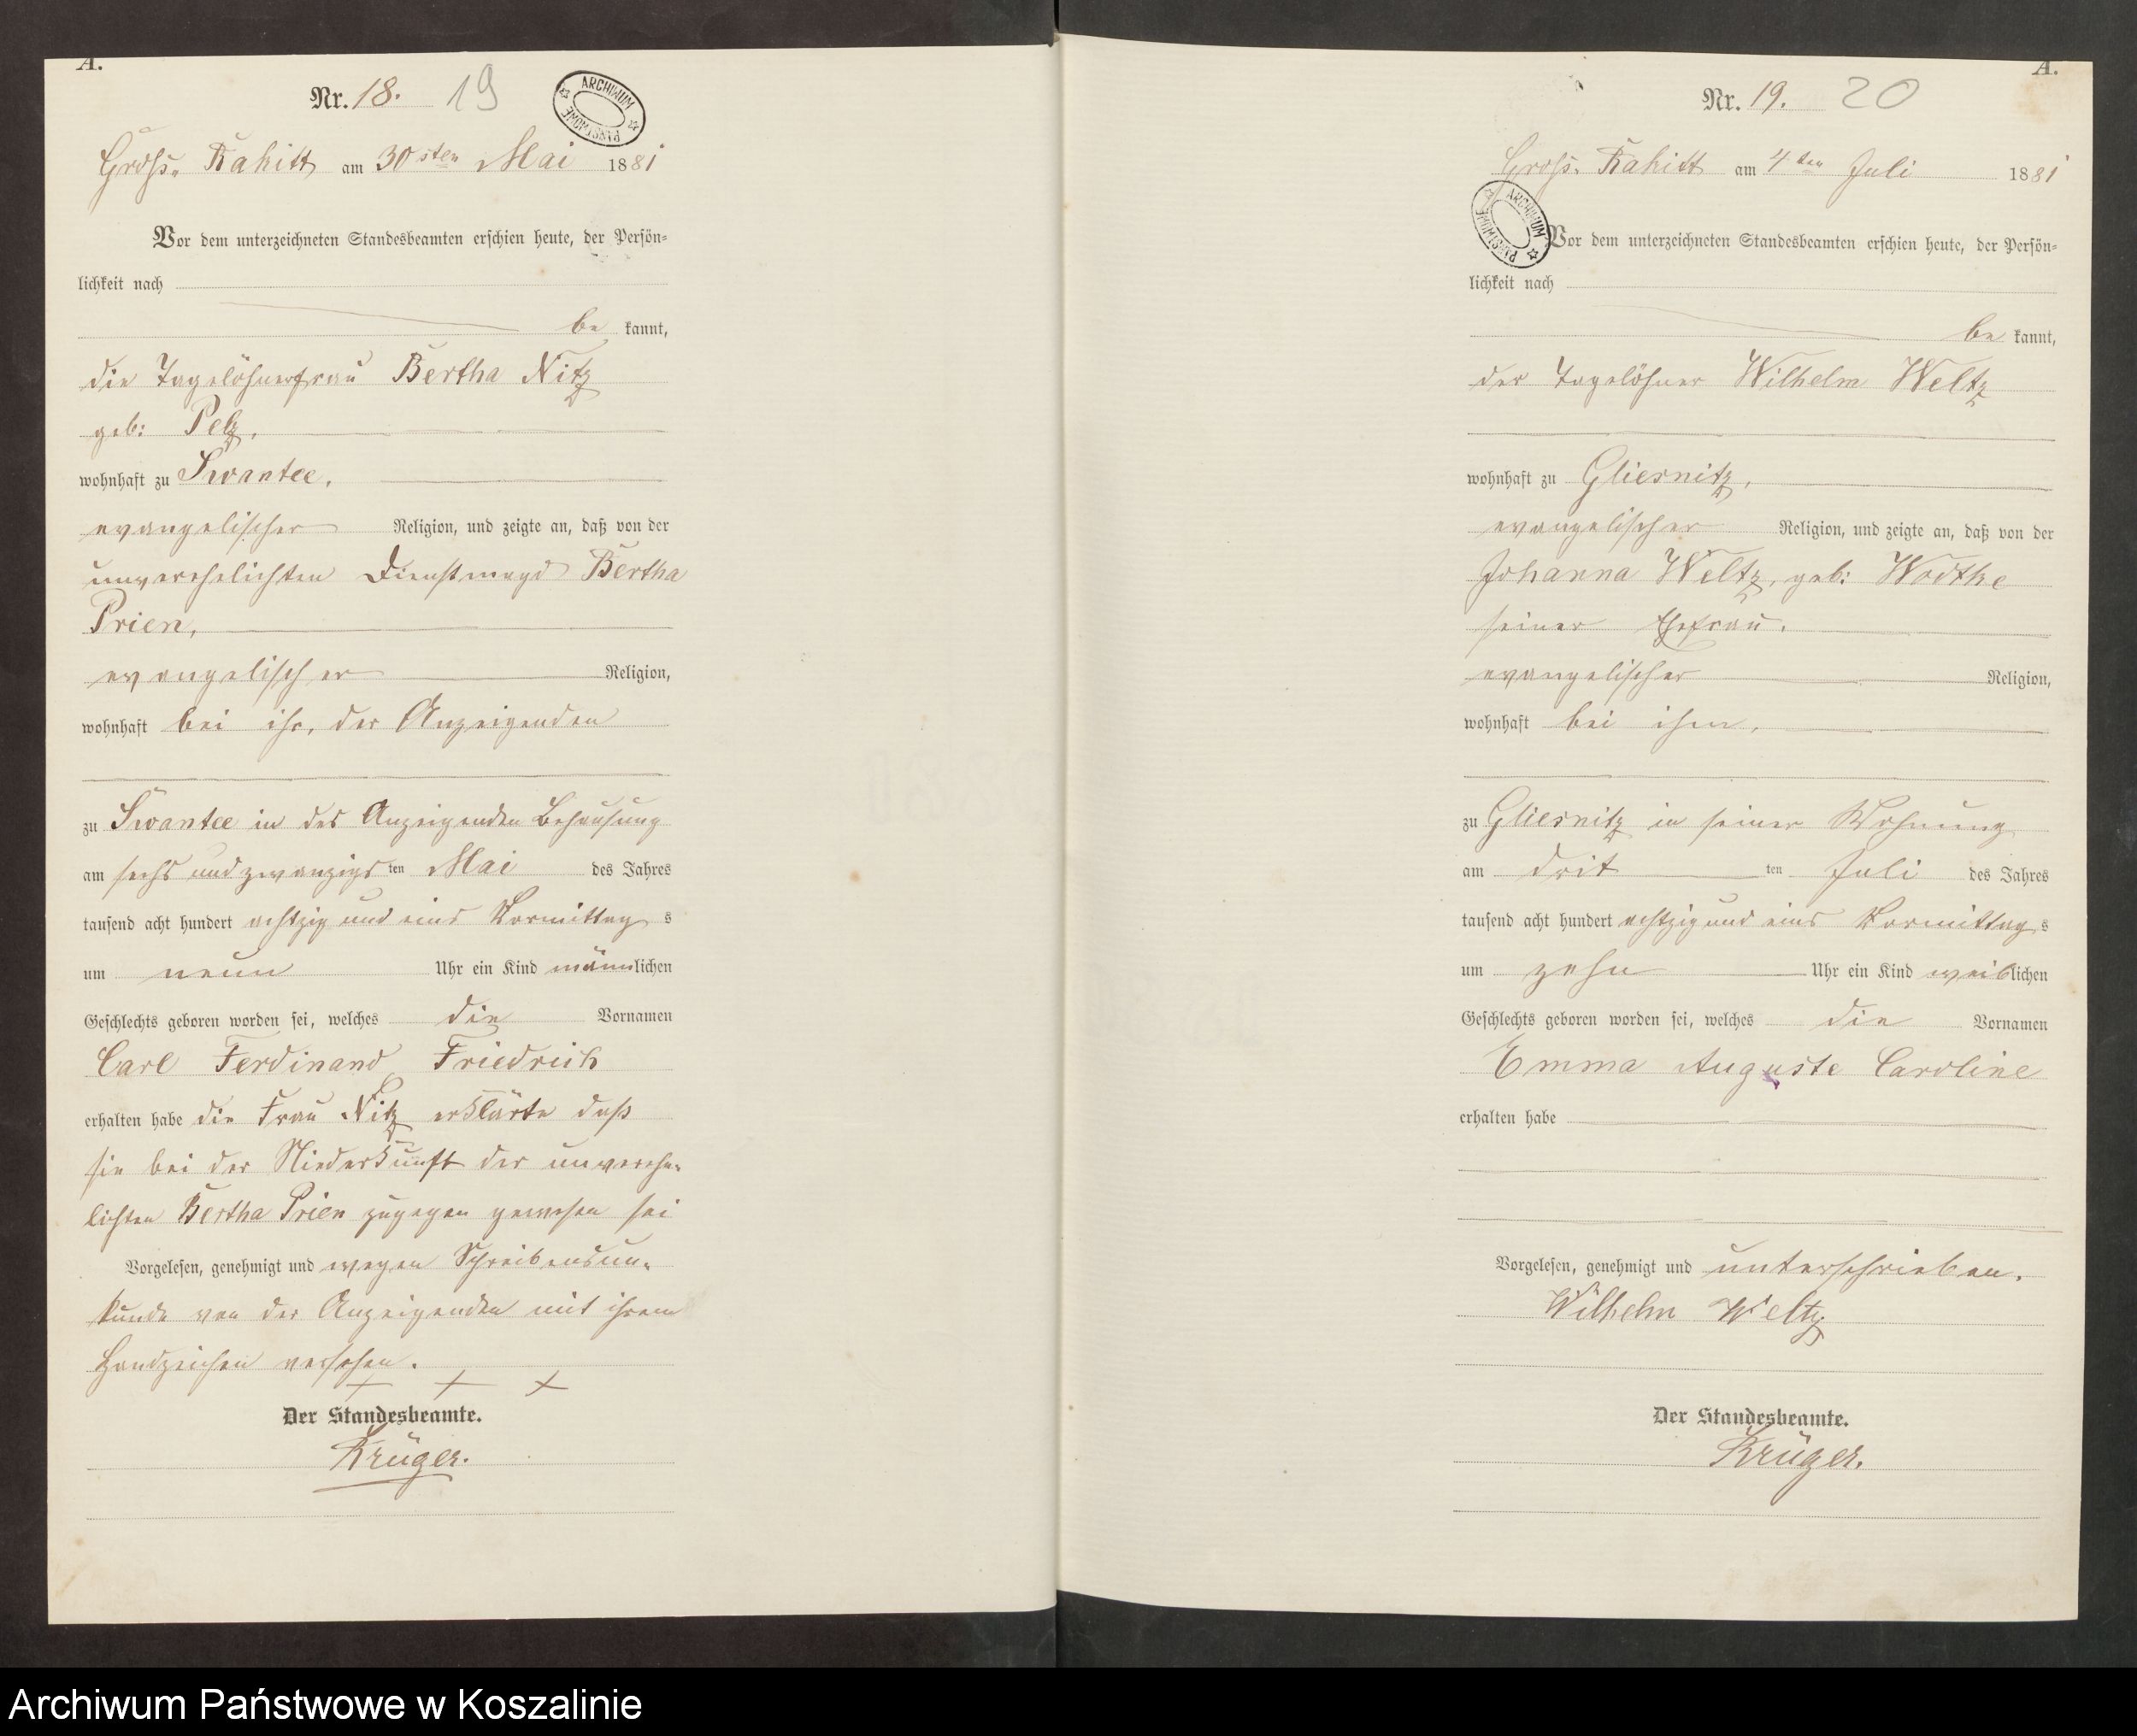 A.
Nr. 18. 19
ARCHIWUM PAŃSTWOWE
Gross-Rakitt am 30sten Mai 1881
Vor dem unterzeichneten Standesbeamten erschien heute, der Persön-
lichkeit nach
be kannt,
die Tagelöhnerfrau Bertha Nitz
geb: Pelz,
wohnhaft zu Swantee,
evangelischer Religion, und zeigte an, daß von der
unverehelichten Dienstmagd Bertha
Prien,
evangelischer Religion,
wohnhaft bei ihr, der Anzeigenden
zu Swantee in der Anzeigenden Behausung
am sechs und zwanzigsten Mai des Jahres
tausend acht hundert achtzig und eins Vormittags
um neun Uhr ein Kind männlichen
Geschlechts geboren worden sei, welches die Vornamen
Carl Ferdinand Friedrich
erhalten habe die Frau Nitz erklärte daß
sie bei der Niederkunft der unverehe-
lichten Bertha Prien zugegen gewesen sei
Vorgelesen, genehmigt und wegen Schreibensun-
kunde von der Anzeigenden mit ihrem
Handzeichen versehen.
+ + +
Der Standesbeamte.
Krüger.
A.
Nr. 19. 20
Gross-Rakitt am 4ten Juli 1881
ARCHIWUM PAŃSTWOWE
Vor dem unterzeichneten Standesbeamten erschien heute, der Persön-
lichkeit nach
be kannt,
der Tagelöhner Wilhelm Weltz
wohnhaft zu Gliesnitz,
evangelischer Religion, und zeigte an, daß von der
Johanna Weltz, geb: Wodtke
seiner Ehefrau,
evangelischer Religion,
wohnhaft bei ihm,
zu Gliesnitz in seiner Wohnung
am dritten Juli des Jahres
tausend acht hundert achtzig und eins Vormittags
um zehn Uhr ein Kind weiblichen
Geschlechts geboren worden sei, welches die Vornamen
Emma Auguste Caroline
erhalten habe
Vorgelesen, genehmigt und unterschrieben.
Wilhelm Weltz
Der Standesbeamte.
Krüger.
Archiwum Państwowe w Koszalinie